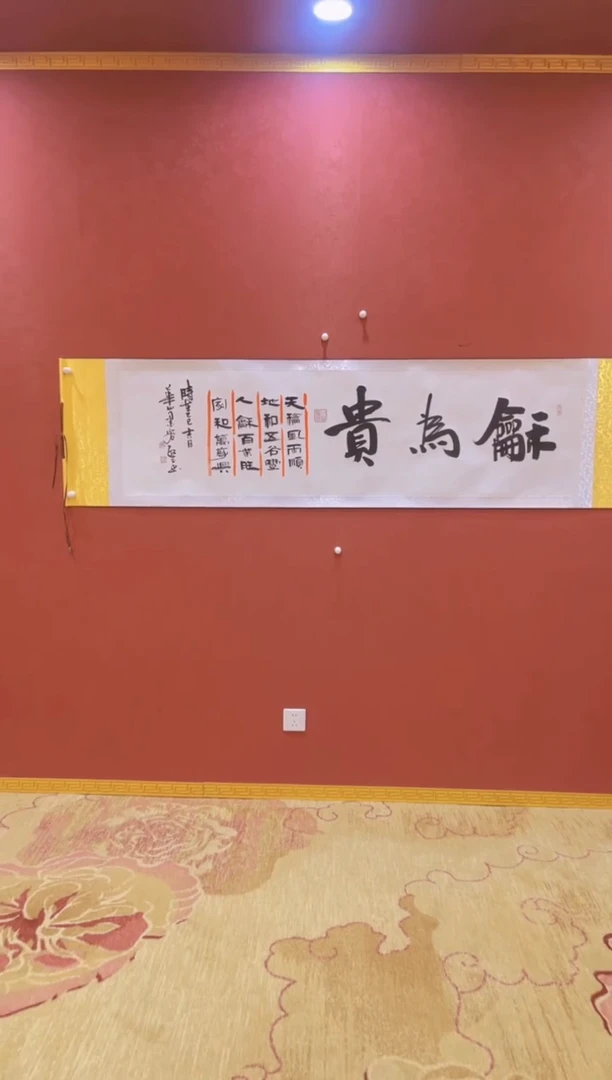 龢為貴
天風雨順
地和五谷豐
人龢百業旺
家和萬事興
乙巳月
華山